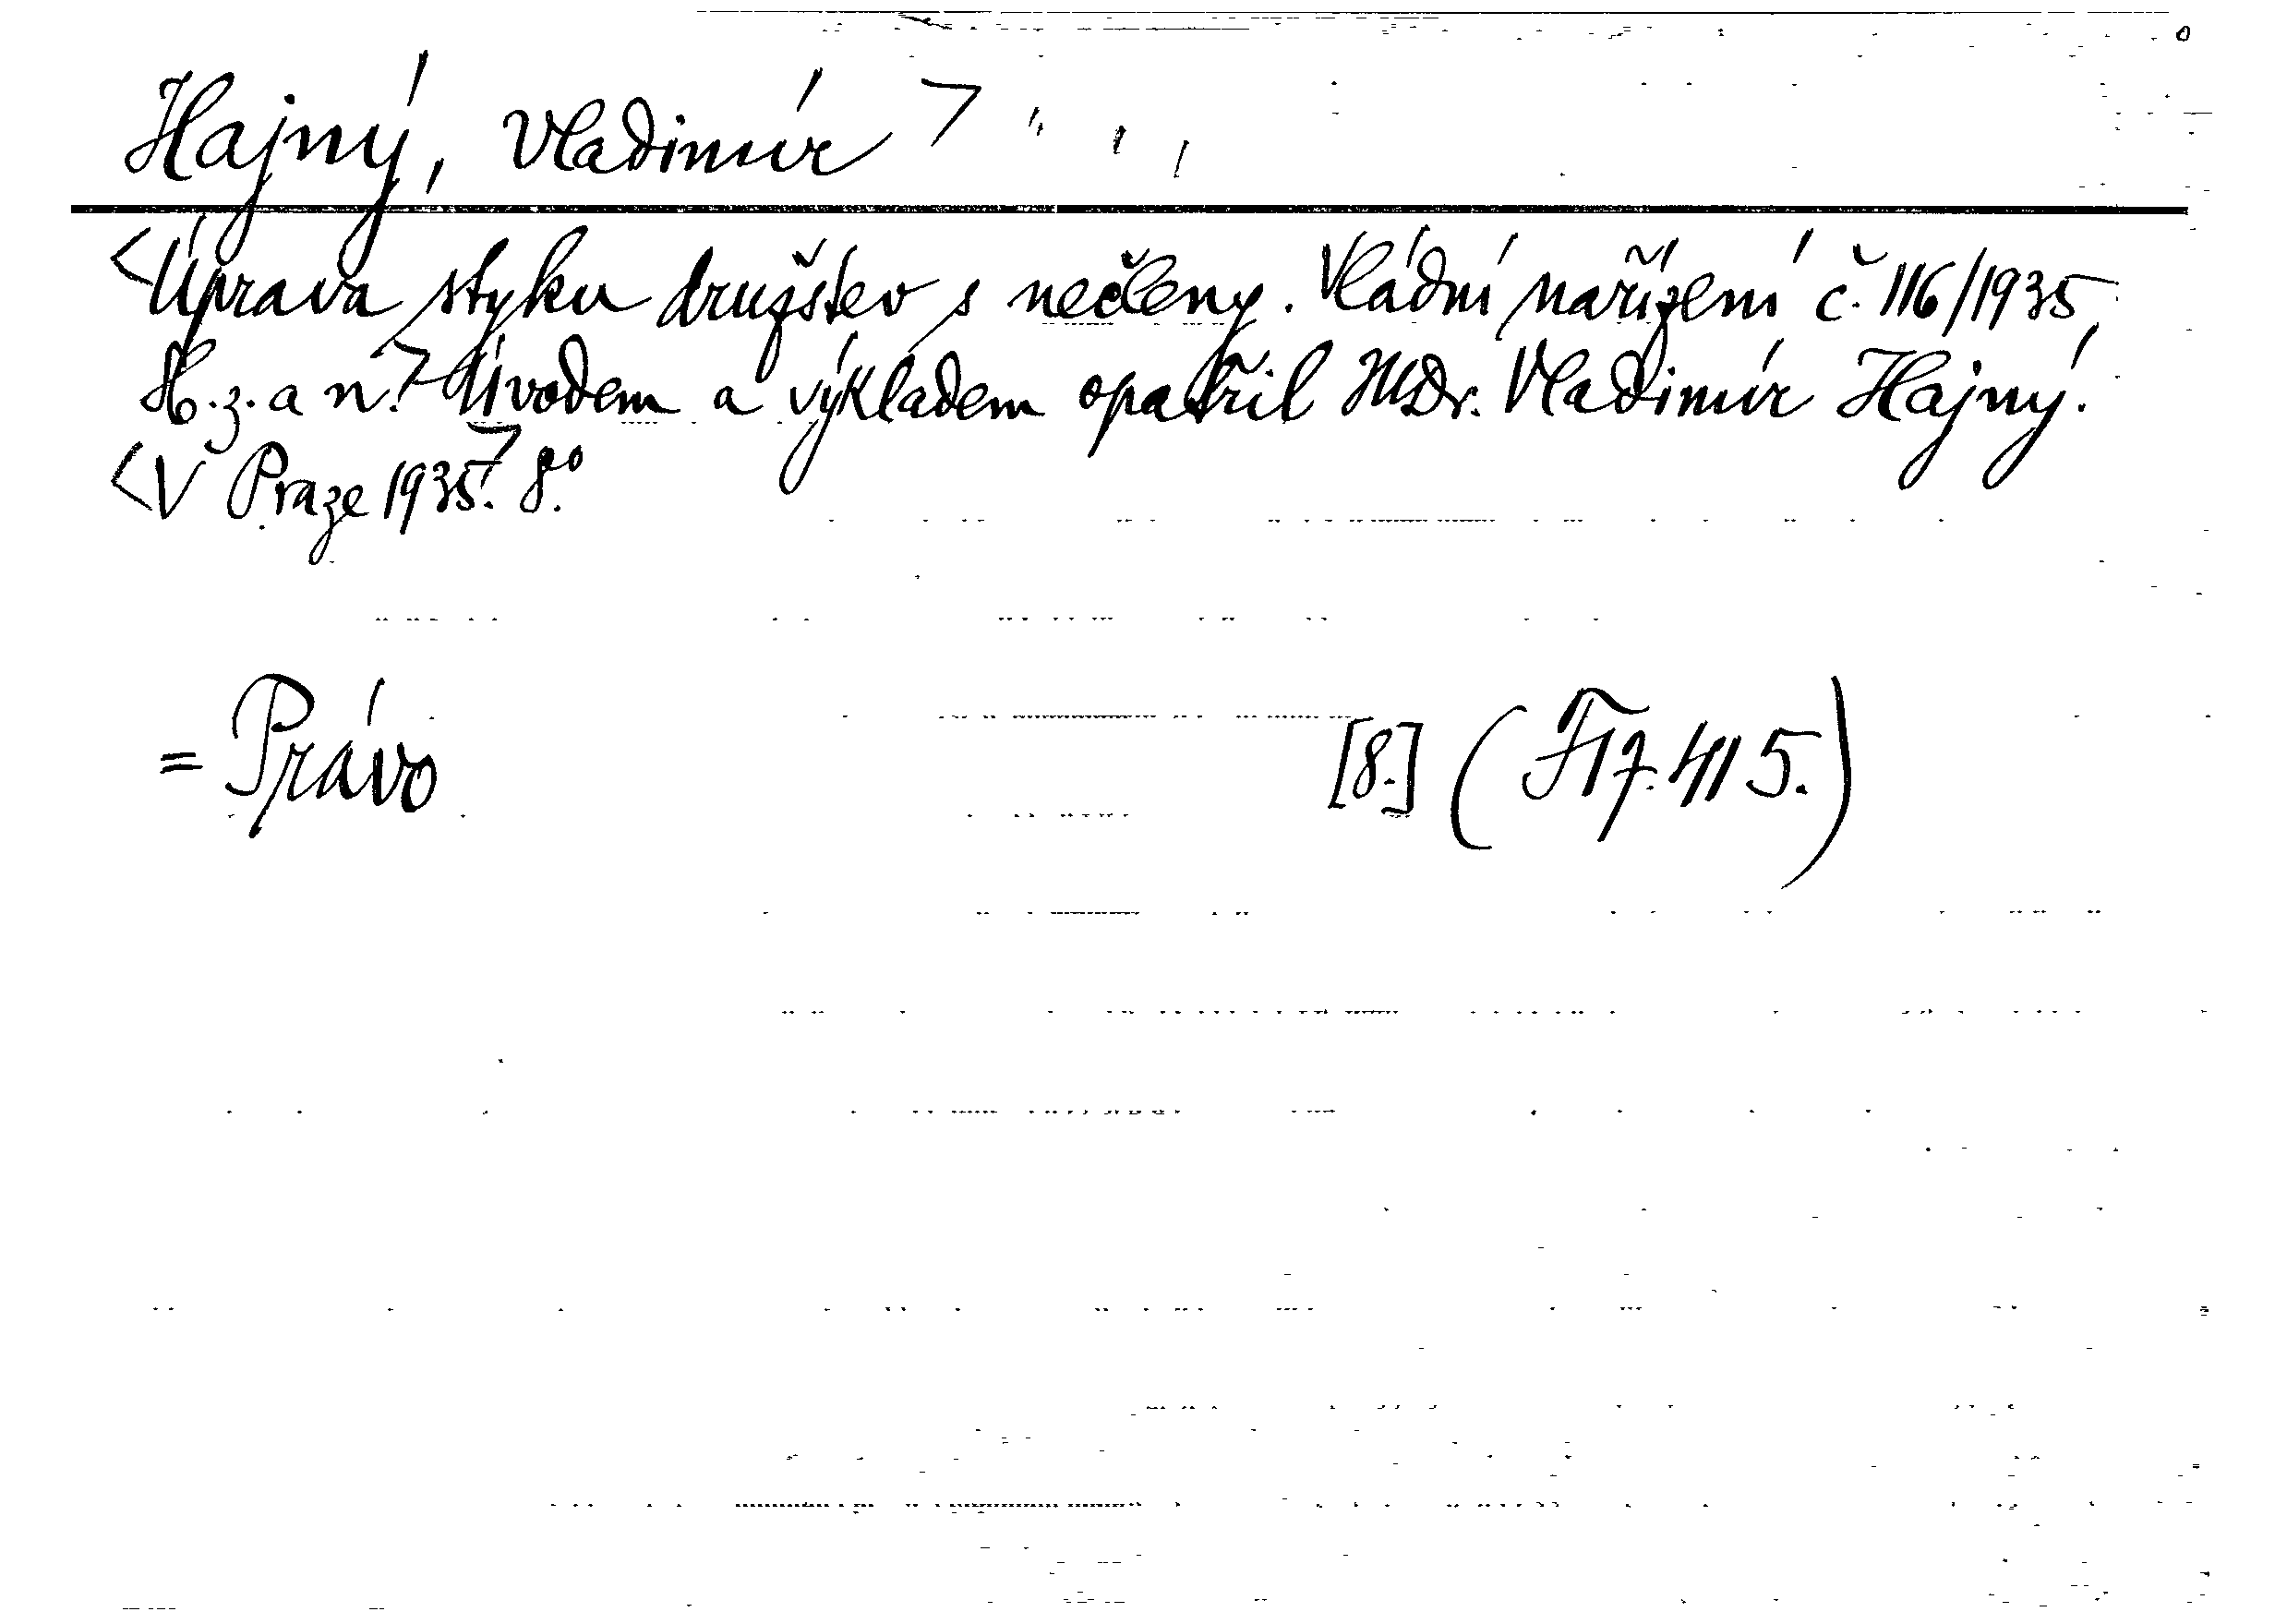 Hajný, Vladimír >
<Úprava styku družstev s nečleny. Vládní nařízení č. 116/1935,
Sb. z. a n.> Úvodem a výkladem opatřil JUDr. Vladimír Hajný.
<V Praze 1935.> 8°.
= Právo [8.] (F17.415.)